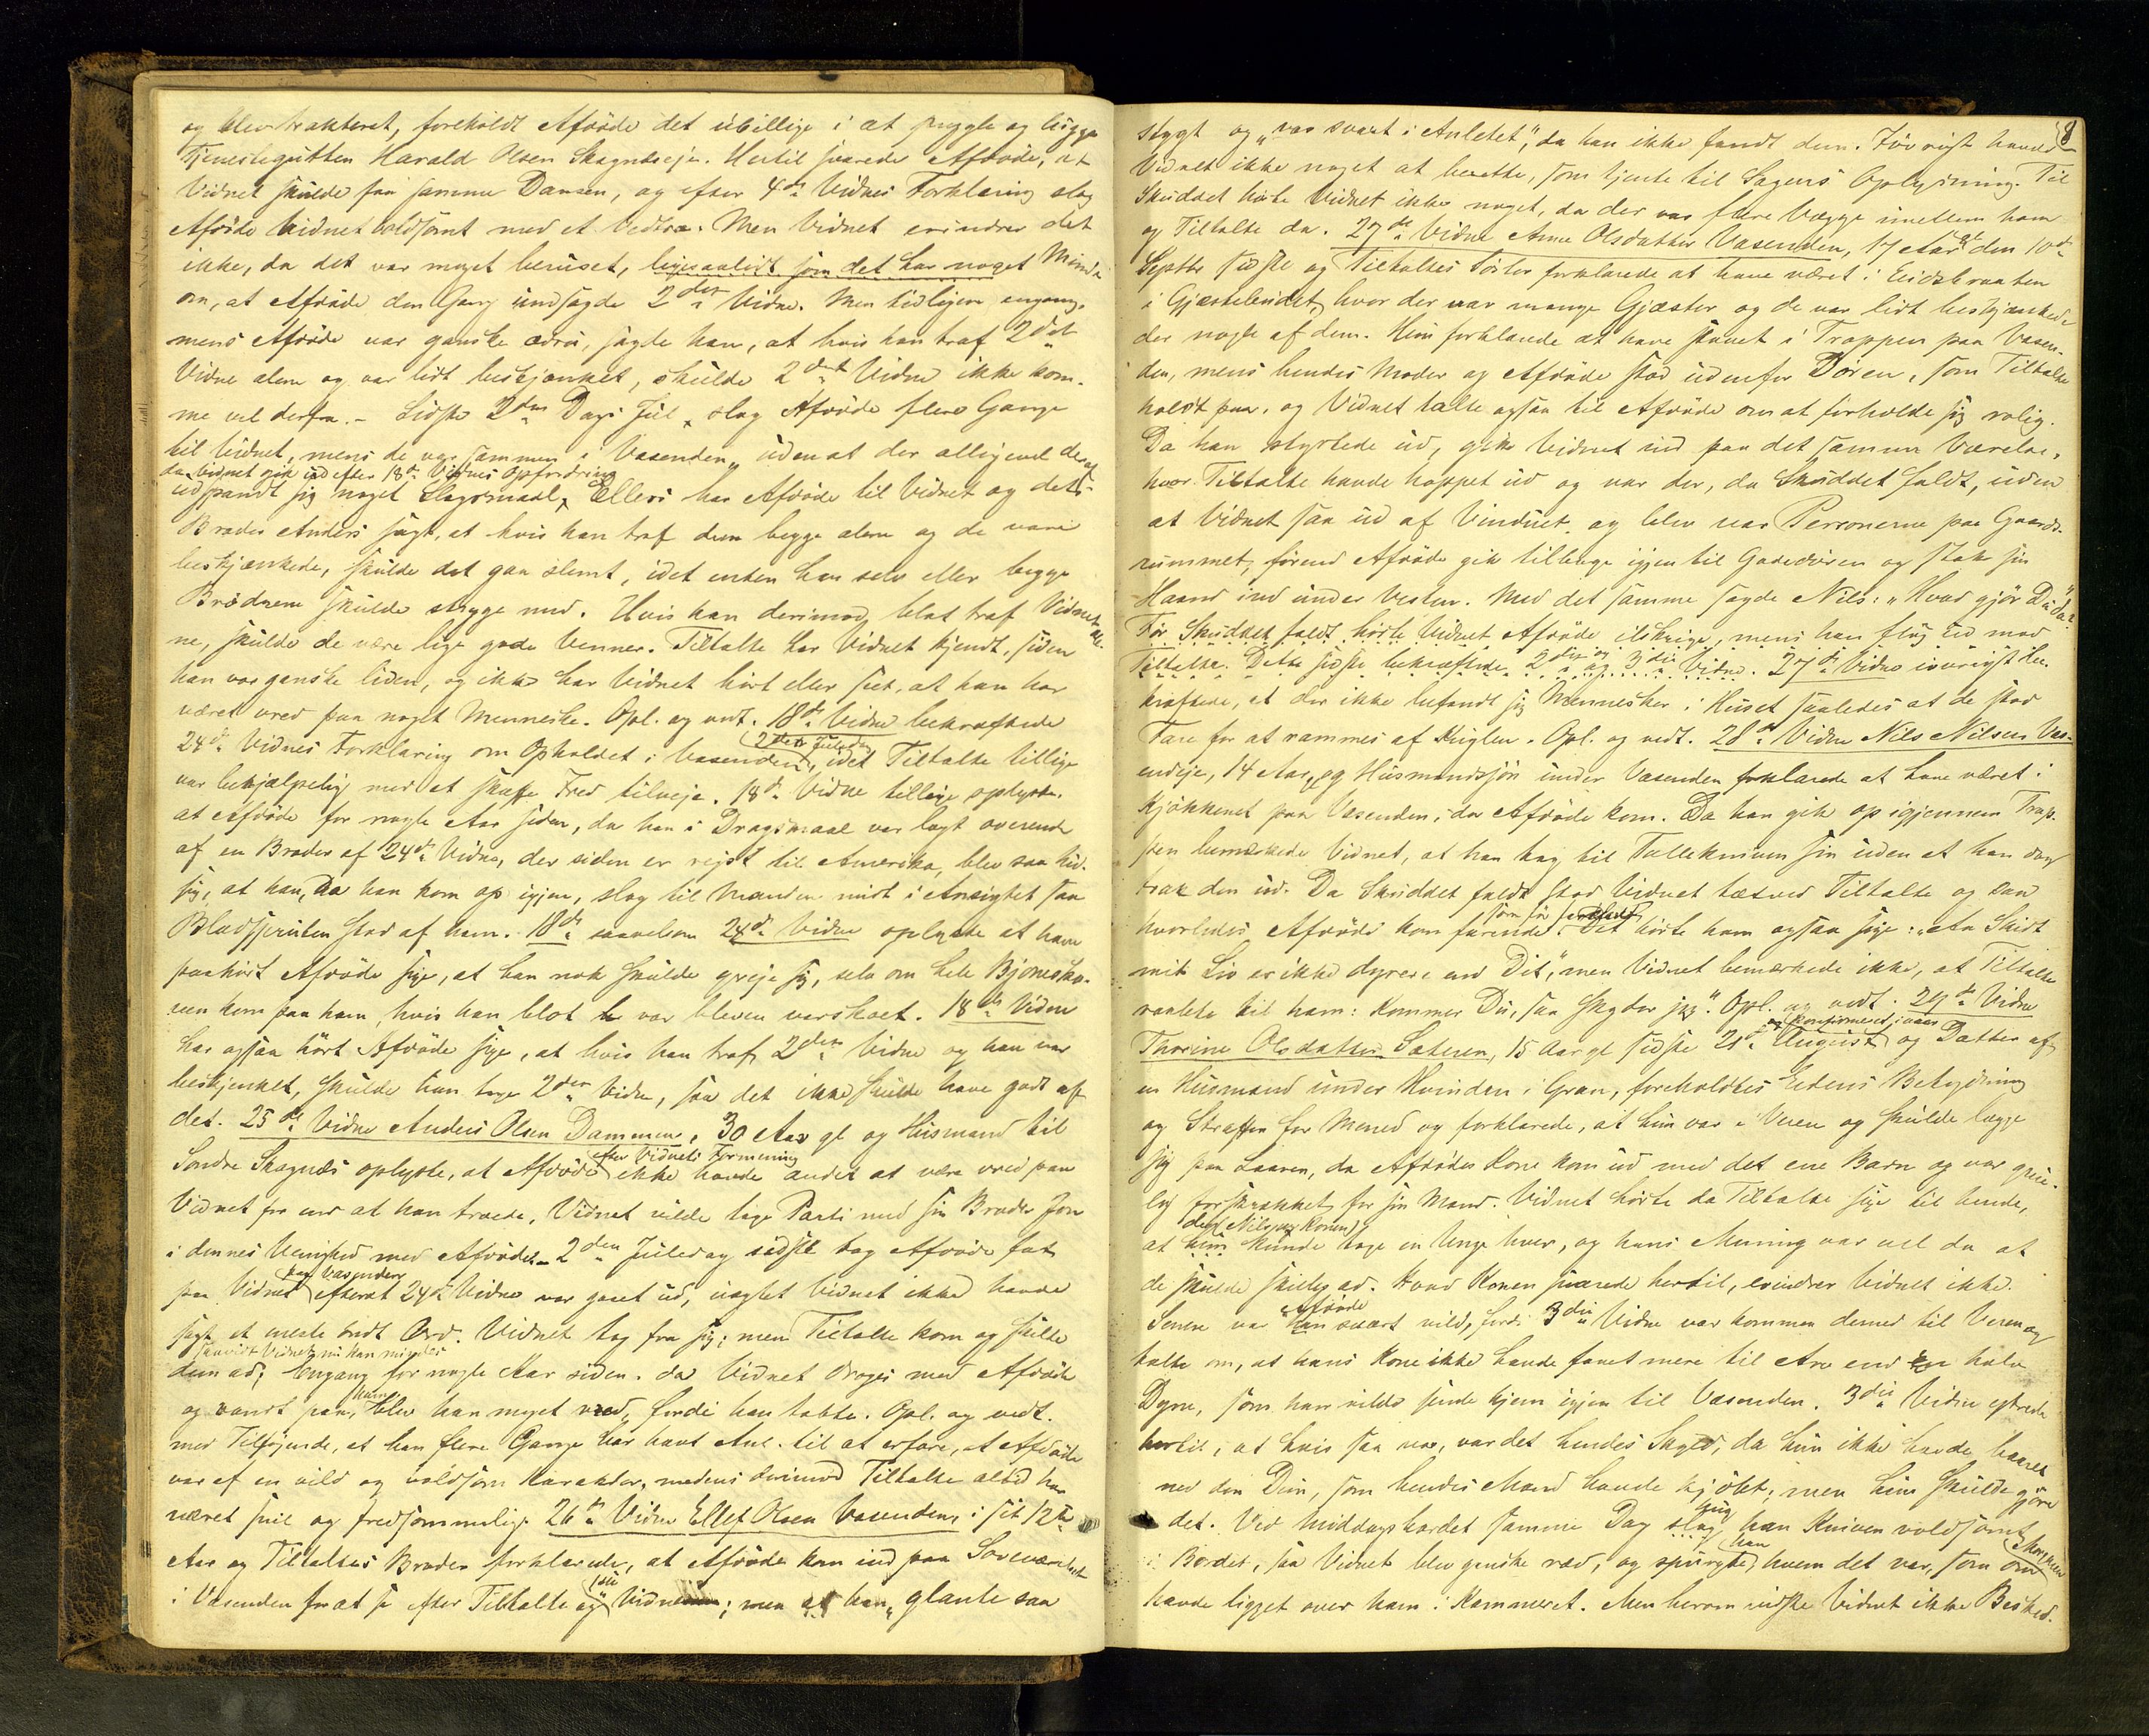 og blev trakteret, foreholdt Afdøde det ubillige i at prygle og hugge
Tjenestegutten Harald Olsen Skagnæseje. Hertil svarede Afdøde, at
Vidnet skulde faa samme Dansen, og efter 4de Vidnes Forklaring slog
Afdøde Vidnet voldsomt med et Vedtræ. Men Vidnet erindrer det
ikke, da det var meget beruset, ligesaalidt som det har noget Minde
om, at Afdøde den Gang undsagde 2det Vidne. Men tidligere engang,
mens Afdøde var ganske ædru, sagde han, at hvis han traf 2det
Vidne alene og var lidt beskjænket, skulde 2det Vidne ikke kom-
me vel derfra. - Sidste 2den Dags Jul slog Afdøde flere Gange
til Vidnet, mens de var sammen i Vasenden, uden at der alligevel deraf
da Vidnet gik ud efter 18de Vidnes Opfordring
udspandt sig noget Slagsmaal. Ellers har Afdøde til Vidnet og dets
Broder Anders sagt, at hvis han traf dem begge alene og de vare
beskjænkede, skulde det gaa slemt, idet enten han selv eller begge
Brødrene skulde stryge med. Hvis han derimod blot traf Vidnet ale-
ne, skulde de være lige gode Venner. Tiltalte har Vidnet kjendt, siden
han var ganske liden, og ikke har Vidnet hørt eller seet, at han har
været vred paa noget Menneske. Opl. og vedt. 18de Vidne bekræftede
2den Juledag
24de Vidnes Forklaring om Opholdet i Vasenden, idet Tiltalte tillige
var behjælpelig med at skaffe Fred tilveje. 18de Vidne tillige oplyste,
at Afdøde for nogle Aar siden, da han i Dragsmaal var lagt overende
af en Broder af 24de Vidne, der siden er rejst til Amerika, blev saa hid-
sig, at han, da han kom op igjen, slog til Manden midt i Ansigtet saa
Blodspruten stod af ham. 18de saavelsom 24de Vidne oplyste at have
paahørt Afdøde sige, at han nok skulde greje sig, selv om hele Bjoneska-
ren kom paa ham, hvis han blot var bleven varskoet. 18de Vidne
har ogsaa hørt Afdøde sige, at hvis han traf 2det Vidne og han var
beskjænket, skulde han tage 2det Vidne, saa det ikke skulde have godt af
det. 25de Vidne Anders Olsen Dammen, 30 Aar gl og Husmand til
efter Vidnets Formening
Søndre Skagnæs oplyste, at Afdøde ikke havde andet at være vred paa
Vidnet for end at han troede, Vidnet vilde tage Parti med sin Broder Jon
i dennes Uenighed med Afdøde. 2den Juledag sidste tog Afdøde fat
paa Vasenden
paa Vidnet efterat 24de Vidne var gaaet ud, uagtet Vidnet ikke havde
sagt et eneste ondt Ord. Vidnet tog fra sig; men Tiltalte kom og skilte
saavidt Vidnet nu kan mindes
dem ad; Engang for nogle Aar siden, da Vidnet droges med Afdøde
ham
og vandt paa, blev han meget vred, fordi han tabte. Opl. og vedt.
med Tilføjende, at han flere Gange har havt Anl. til at erfare, at Afdøde
var af en vild og voldsom Karakter, medens derimod Tiltalte altid har
været snil og fredsommelig. 26de Vidne Ellef Olsen Vasenden, i sit 12te
Aar og Tiltaltes Broder forklarede, at Afdøde kom ind paa Soveværelset
i Vasenden for at se efter Tiltalte og Vidnet; men at han glante saa
8
stygt og "var svart i Anletet", da han ikke fandt dem. Forøvrigt havde
Vidnet ikke noget at berette, som tjente til Sagens Oplysning. Til
Skuddet hørte Vidnet ikke noget, da der var flere Vægge imellem ham
og Tiltalte da. 27de Vidne Anne Olsdatter Vasenden, 17 Aar gl den 10de
Septbr sidste og Tiltaltes Søster forklarede at have været i Eidsbraaten
i Gjæstebudet, hvor der var mange Gjæster og de var lidt beskjænkede
der nogle af dem. Hun forklarede at have staaet i Trappen paa Vasen-
den, mens hendes Moder og Afdøde stod udenfor Døren, som Tiltalte
holdt paa, og Vidnet talte ogsaa til Afdøde om at forholde sig rolig.
Da han styrtede ud, gik Vidnet ind paa det samme Værelse,
hvor Tiltalte havde hoppet ud og var der, da Skuddet faldt, uden
at Vidnet saa ud af Vinduet og blev var Personerne paa Gaards-
rummet, førend Afdøde gik tilbage igjen til Gadedøren og stak sin
Haand ind under Vesten. Med det samme sagde Nils: "Hvad gjør Du da?"
Før Skuddet faldt hørte Vidnet Afdøde ilskrige, mens han fløg ud mod
Tiltalte. Dette sidste bekræftede 2det og 3die Vidne. 27de Vidne iøvrigt be-
kræftede, at der ikke befandt sig Mennesker i Huset saaledes at de stod
Fare for at rammes af Kuglen. Opl. og vedt. 28de Vidne Nils Nilsen Vas-
endeje, 14 Aar gl og Husmandssøn under Vasenden forklarede at have været i
Kjøkkenet paa Vasenden, da Afdøde kom. Da han gik op igjennem Trap-
pen bemærkede Vidnet, at han tog til Tollekniven sin uden at han dog
trak den ud. Da Skuddet faldt stod Vidnet tætved Tiltalte og saa
som før forklaret
hvorledes Afdøde kom farende. Det hørte ham ogsaa sige: "Aa Skidt
mit Liv er ikke dyrere end Dit", men Vidnet bemærkede ikke, at Tiltalte
raabte til ham: Kommer Du, saa skyder jeg". Opl. og vedt. 29de Vidne
og konfirmeret ivaar
Thorine Olsdatter Sæteren, 15 Aar gl sidste 21de August og Datter af
en Husmand under Hvinden i Gran, foreholdtes Edens Betydning
og Straffen for Mened og forklarede, at hun var i Veien og skulde lægge
sig paa Laaven, da Afdødes Kone kom ud med det ene Barn og var grue-
lig forskrækket for sin Mand. Vidnet hørte da Tiltalte sige til hende,
de (Nils og Konen)
at hun kunde tage en Unge hver, og hans Mening var vel da at
de skulde skilles ad. Hvad Konen svarede hertil, erindrer Vidnet ikke.
Afdøde
Senere var han svært vild, fordi 3die Vidne var kommen derned til Veien og
talte om, at hans Kone ikke havde faaet mere til Arv end en halv
Dyne, som han vilde sende hjem igjen til Vasenden. 3die Vidne ytrede
hertil, at hvis saa var, var det hendes Skyld, da hun ikke havde baaret
ned den Dun, som hendes Mand havde kjøbt; men hun skulde gjøre
hug
det. Ved Middagsbordet samme Dag slog han Kniven voldsomt
han
i Bordet, saa Vidnet blev ganske ræd, og spurgte, hvem det var, som
havde ligget over ham i Kammeret. Men herom vidste Vidnet ikke Besked.